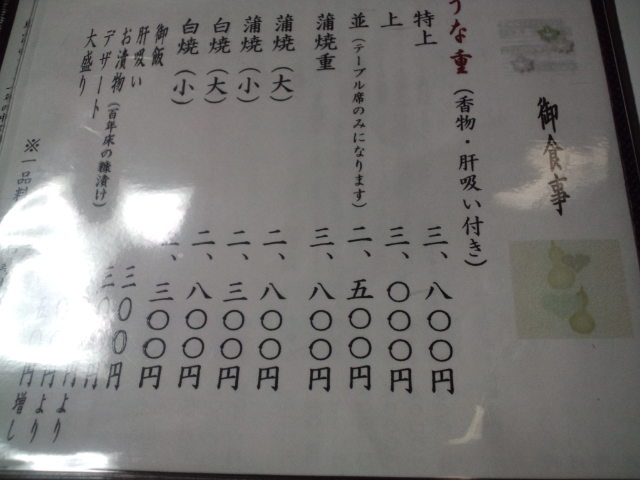 御食事
うな重（香物・肝吸い付き）
特上 三、八〇〇円
上 三、〇〇〇円
並（テーブル席のみになります） 二、五〇〇円
蒲焼重 三、八〇〇円
蒲焼（大） 二、八〇〇円
蒲焼（小） 二、三〇〇円
白焼（大） 二、八〇〇円
白焼（小） 三〇〇円
御飯 三〇〇円
肝吸い 円
お漬物（百年床の糠漬け） 円より
デザート 円より
大盛り 円増し
※一品料